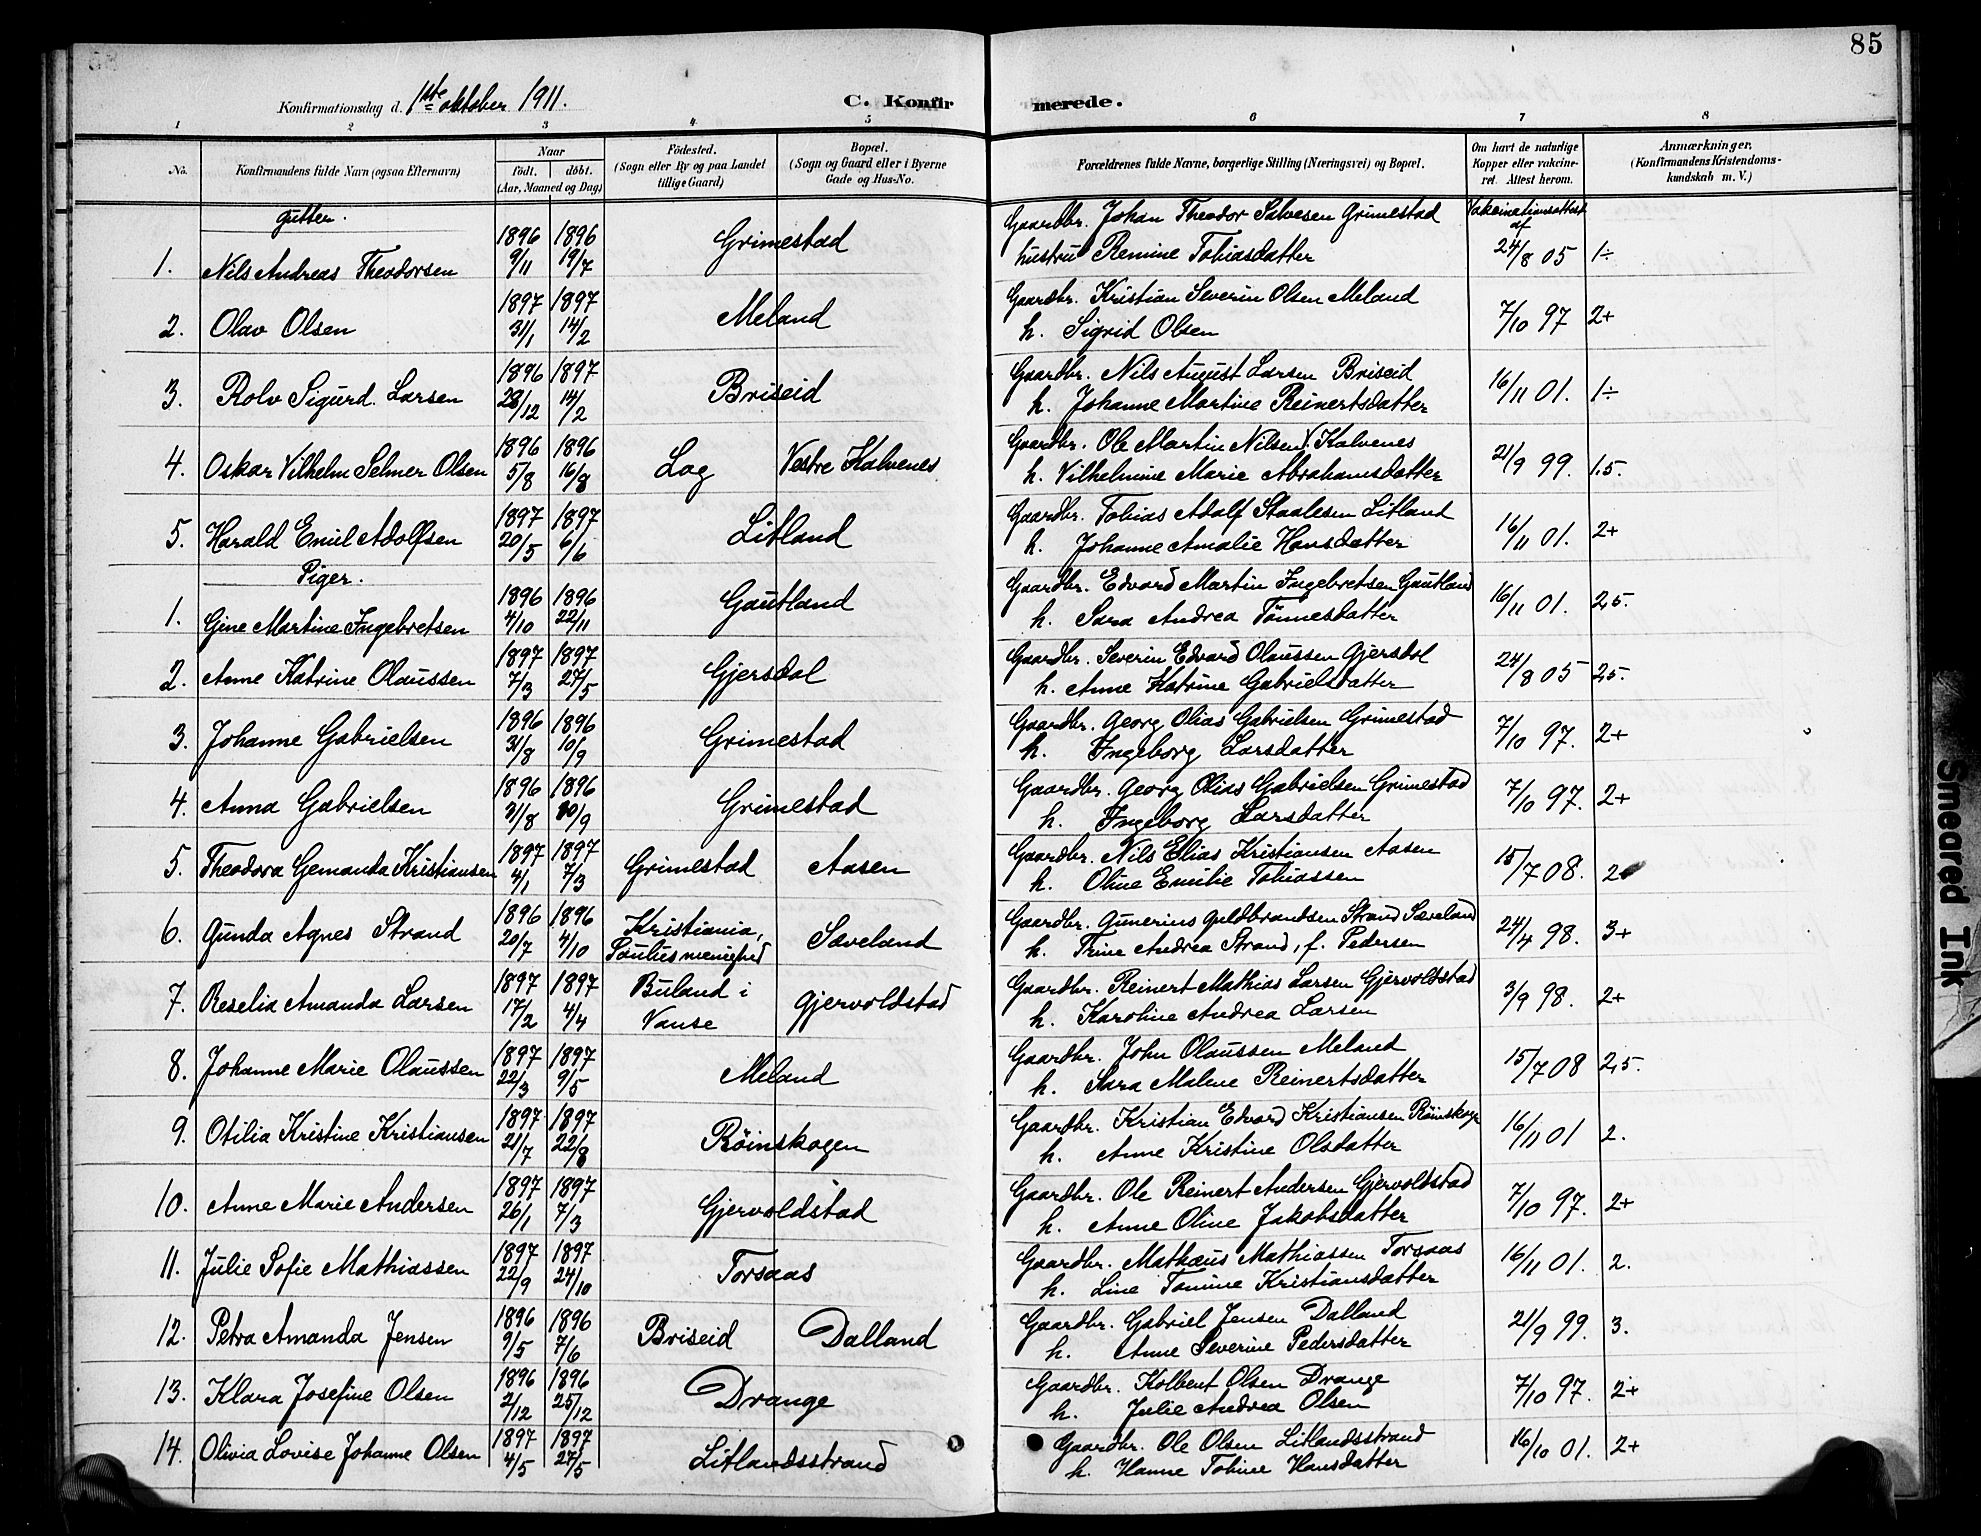 85
Konfirmationsdag d. 1ste oktober 1911. C. Konfirmerede.
1 2 3 4 5 6 7 8
No. Konfirmandens fulde Navn (ogsaa Efternavn) Naar født. døbt. (Aar, Maaned og Dag) Fødested. (Sogn eller By og paa Landet tillige Gaard) Bopæl. (Sogn og Gaard eller i Byerne Gade og Hus-No.) Forældrenes fulde Navne, borgerlige Stilling (Næringsvei) og Bopæl. Om havt de naturlige Kopper eller vakcineret. Attest herom. Anmærkninger. (Konfirmandens Kristendomskundskab m. V.)
Gutter.
1. Nils Andreas Theodorsen 1896 9/11 1896 19/7 Grimestad Gaardbr. Johan Theodor Salvesen Grimestad Vakcinationsattest af
hustru Remine Tobiasdatter 24/8 05 1÷
2. Olav Olsen 1897 31/1 1897 14/2 Meland Gaardbr. Kristian Severin Olsen Meland
h. Sigrid Olsen 7/10 97 2+
3. Rolv Sigurd. Larsen 1896 28/12 1897 14/2 Briseid Gaardbr. Nils August Larsen Briseid
h. Johanne Martine Reinertsdatter 16/11 01. 1÷
4. Oskar Vilhelm Selmer Olsen 1896 5/8 1896 16/8 Log Vestre Kalvenes Gaardbr. Ole Martin Nilsen V. Kalvenes
h. Vilhelmine Marie Abrahamsdatter 21/9 99. 1,5.
5. Harald Emil Adolfsen 1897 20/5 1897 6/6 Litland Gaardbr. Tobias Adolf Staalesen Litland
h. Johanne Amalie Hansdatter 16/11 01. 2+
Piger.
1. Gine Martine Ingebretsen 1896 4/10 1896 22/11 Gautland Gaardbr. Edvard Martin Ingebretsen Gautland
h. Sara Andrea Tønnesdatter 16/11 01. 2,5.
2. Anne Katrine Olaussen 1897 7/3 1897 27/5 Gjersdal Gaardbr. Severin Edvard Olaussen Gjersdal
h. Anne Katrine Gabrielsdatter 24/8 05 2,5.
3. Johanne Gabrielsen 1896 31/8 1896 10/9 Grimestad Gaardbr. Georg Olias Gabrielsen Grimestad
h. Ingeborg Larsdatter 7/10 97. 2+
4. Anna Gabrielsen 1896 31/8 1896 10/9 Grimestad Gaardbr. Georg Olias Gabrielsen Grimestad
h. Ingeborg Larsdatter 7/10 97. 2+
5. Theodora Gemanda Kristiansen 1897 4/1 1897 7/3 Grimestad Aasen Gaardbr. Nils Elias Kristiansen Aasen
h. Oline Emilie Tobiassen 15/7 08. 2
6. Gunda Agnes Strand 1896 20/7 1896 4/10 Kristiania, Paulus menighed Sæveland Gaardbr. Gunerius Guldbrandsen Strand Sæveland
h. Trine Andrea Strand, f. Pedersen 24/4 98. 3+
7. Reselia Amanda Larsen 1897 17/2 1897 4/4 Buland i Vanse Gjervoldstad Gaardbr. Reinert Mathias Larsen Gjervoldstad
h. Karoline Andrea Larsen 3/9 98. 2+
8. Johanne Marie Olaussen 1897 22/3 1897 9/5 Meland Gaardbr. John Olaussen Meland
h. Sara Malene Reinertsdatter 15/7 08 2,5.
9. Otilia Kristine Kristiansen 1897 21/7 1897 22/8 Röinskogen Gaardbr. Kristian Edvard Kristiansen Röinskogn
h. Anne Kristine Olsdatter 16/11 01 2.
10. Anne Marie Andersen 1897 26/1 1897 7/3 Gjervoldstad Gaardbr. Ole Reinert Andersen Gjervoldstad
h. Anne Oline Jakobsdatter 7/10 97. 2+
11. Julie Sofie Mathiassen 1897 22/9 1897 24/10 Torsaas Gaardbr. Mathæus Mathiassen Torsaas
h. Line Tomine Kristiansdatter 16/11 01. 2.
12. Petra Amanda Jensen 1896 9/5 1896 7/6 Briseid Dalland Gaardbr. Gabriel Jensen Dalland
h. Anne Severine Pedersdatter 21/9 99. 3.
13. Klara Josefine Olsen 1896 2/12 1896 25/12 Drange Gaardbr. Kolbent Olsen Drange
h. Julie Andrea Olsen 7/10 97. 2+
14. Olivia Lovise Johanne Olsen 1897 4/5 1897 27/5 Litlandsstrand Gaardbr. Ole Olsen Litlandsstrand
h. Hanne Tobine Hansdatter 16/10 01. 2+
Smeared Ink